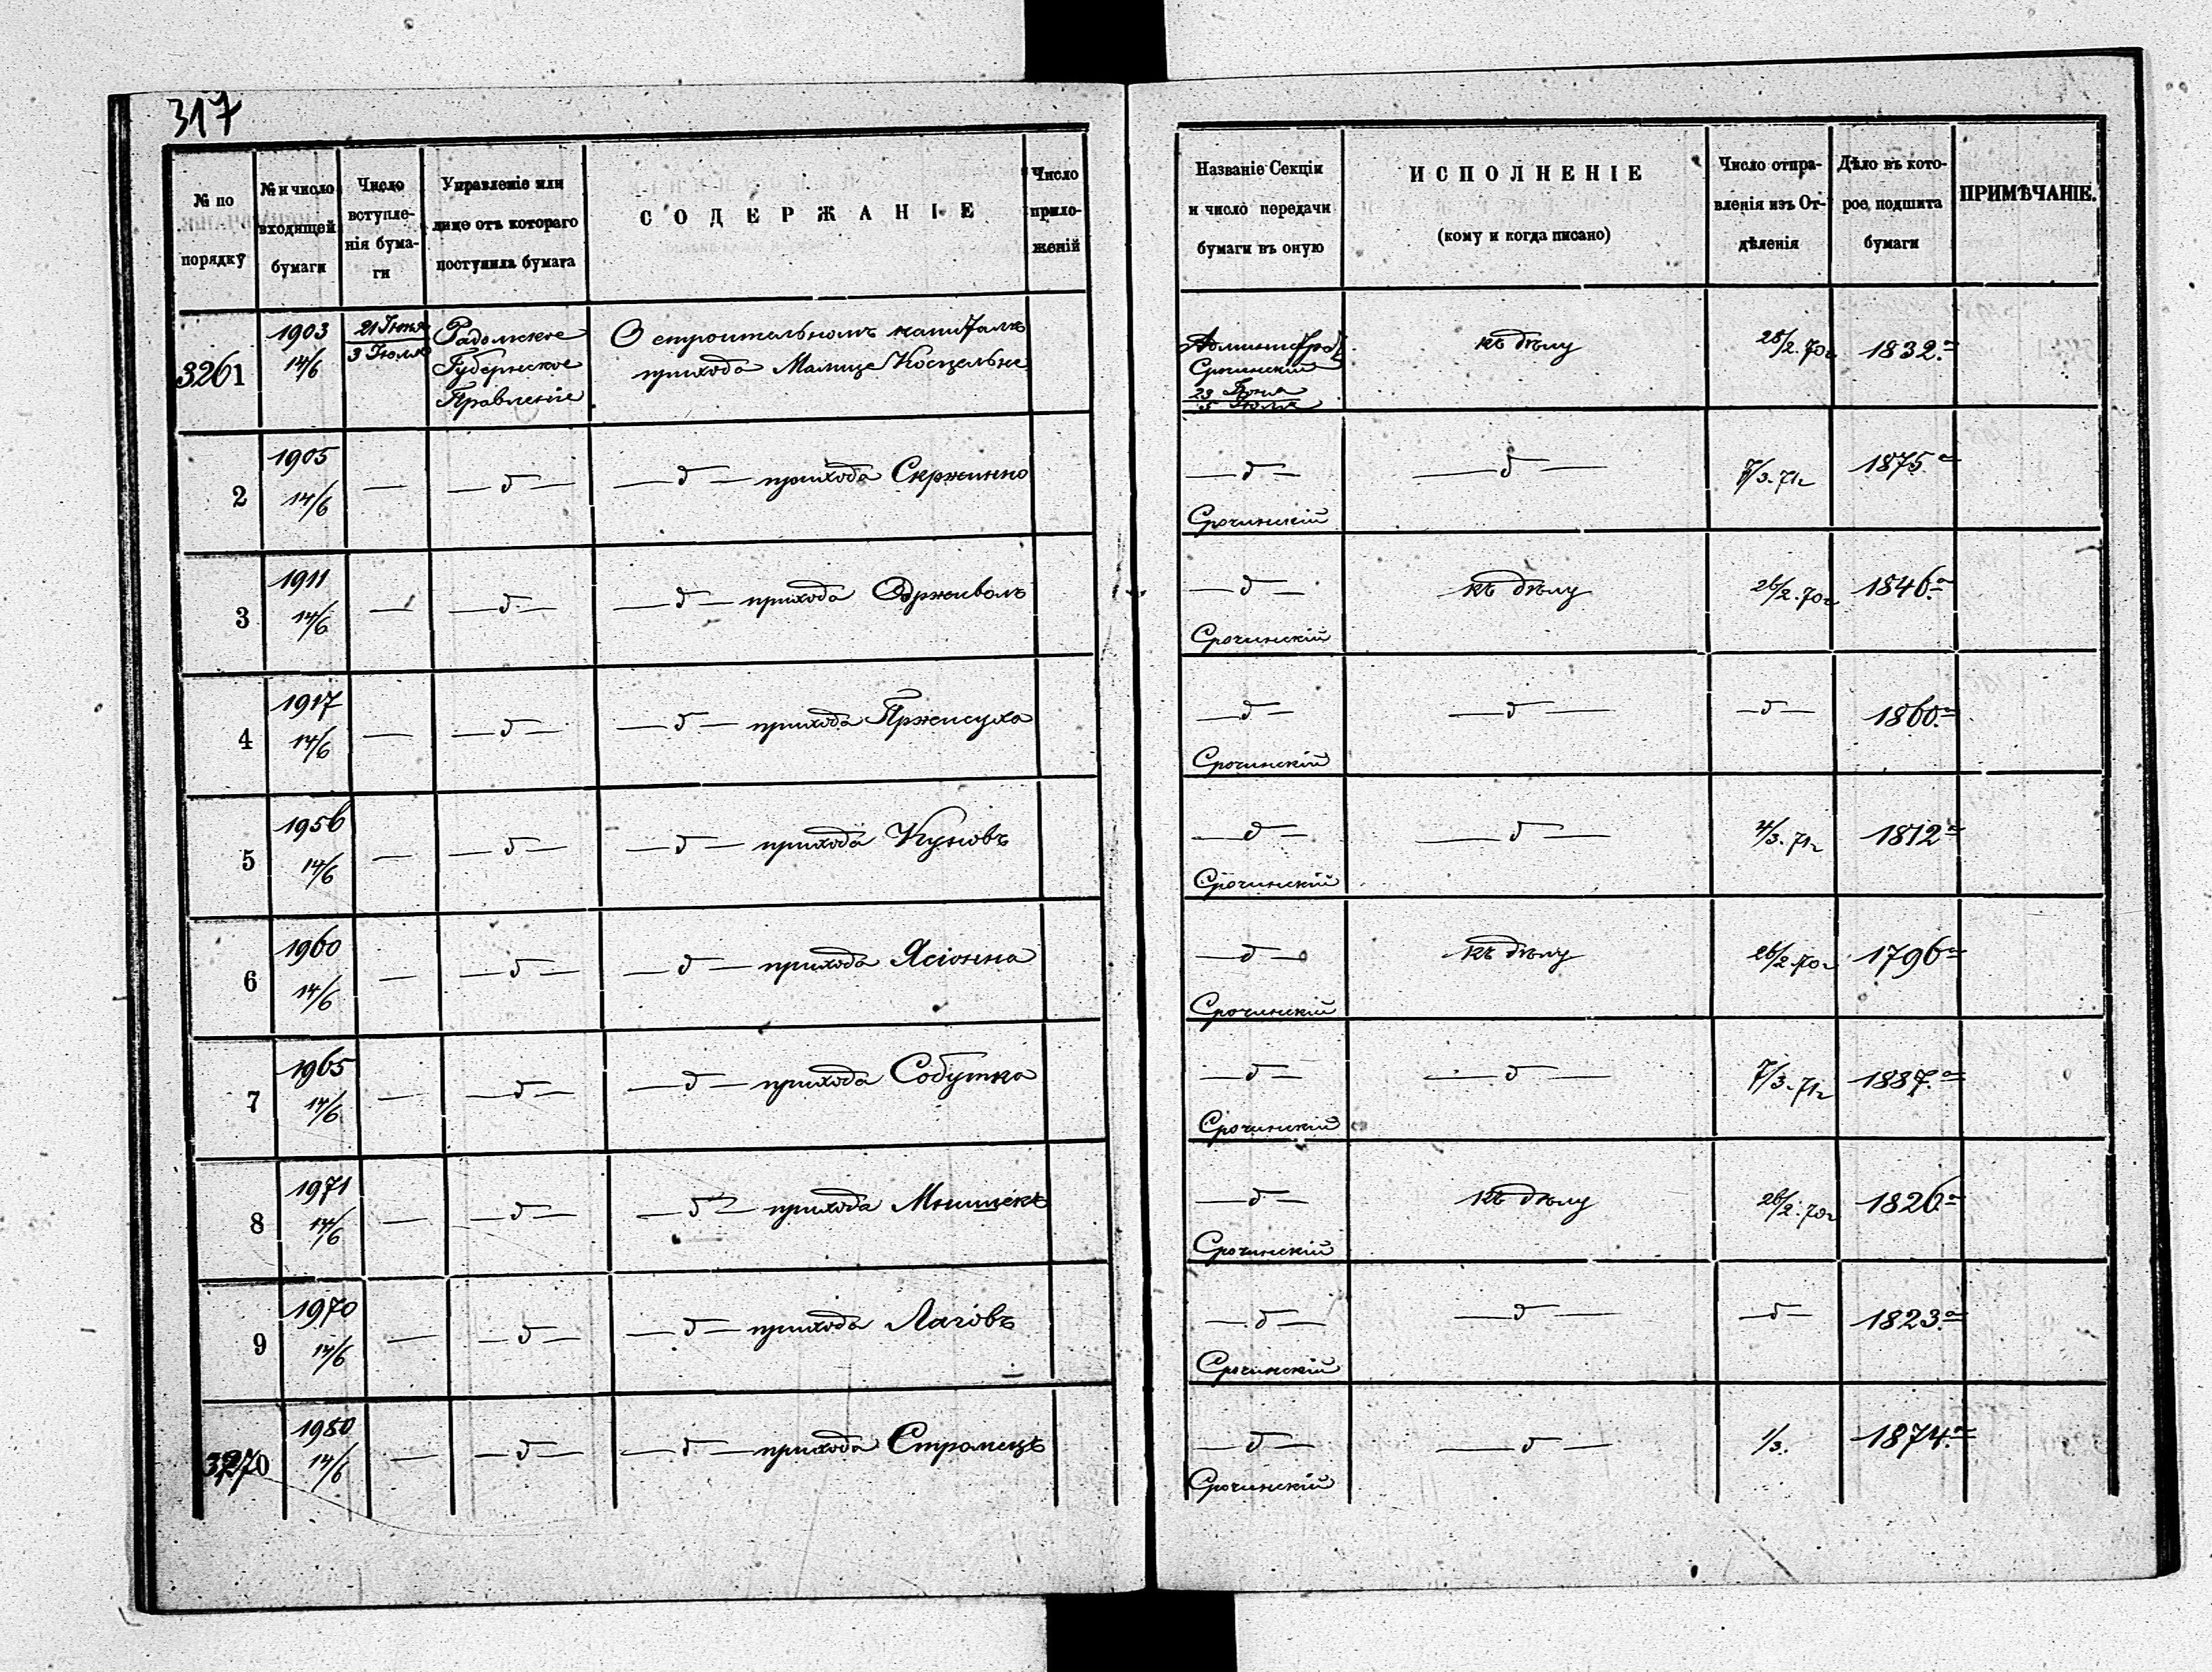 317
№ по порядку
№ и число входящей бумаги
Число вступле-нія бума-ги
Управленіе или лице отъ котораго поступила бумага
СОДЕРЖАНІЕ
Число прило-женій
Названіе Секціи и число передачи бумаги въ оную
ИСПОЛНЕНІЕ
(кому и когда писано)
Число отпра-вленія изъ От-дѣленія
Дѣло въ кото-рое подшита бумаги
ПРИМѢЧАНІЕ.
3261 1903 14/6 21 Іюня 3 Іюля Радомское Губернское Правленіе О строительномъ капиталѣ прихода Малице Косцельне Срочинскій 23 Іюня 5 Іюля къ дѣлу 28/2. 70г 1832.а
2 1905 14/6 — —д— —д— прихода Скржинно —д— Срочинскій —д— 7/3. 71г 1875.а
3 1911 14/6 — —д— —д— прихода Одрживолъ —д— Срочинскій къ дѣлу 26/2. 70г 1846.а
4 1917 14/6 — —д— —д— прихода Пржисуха —д— Срочинскій —д— —д— 1860.а
5 1956 14/6 — —д— —д— прихода Куновъ —д— Срочинскій —д— 4/3. 71г 1812а
6 1960 14/6 — —д— —д— прихода Ясіонна —д— Срочинскій къ дѣлу 26/2. 70г 1796а
7 1965 14/6 — —д— —д— прихода Собутка —д— Срочинскій —д— 7/3. 71г 1887.а
8 1971 14/6 — —д— —д— прихода Мнишекъ —д— Срочинскій къ дѣлу 26/2. 70г 1826.а
9 1970 14/6 — —д— —д— прихода Лаговъ —д— Срочинскій —д— —д— 1823.а
3270 1980 14/6 — —д— —д— прихода Стромецъ —д— Срочинскій —д— 1/3. 1874.а